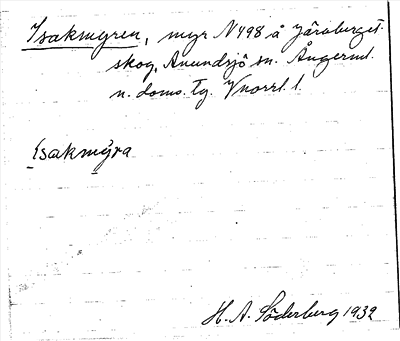 Isakmyren, myr N 498 å Järaberget.
skog, Anundsjö sn. Ångerml.
n. doms. Tg. Vnorrl. l.
Isakmýra
H. A. Söderberg 1932